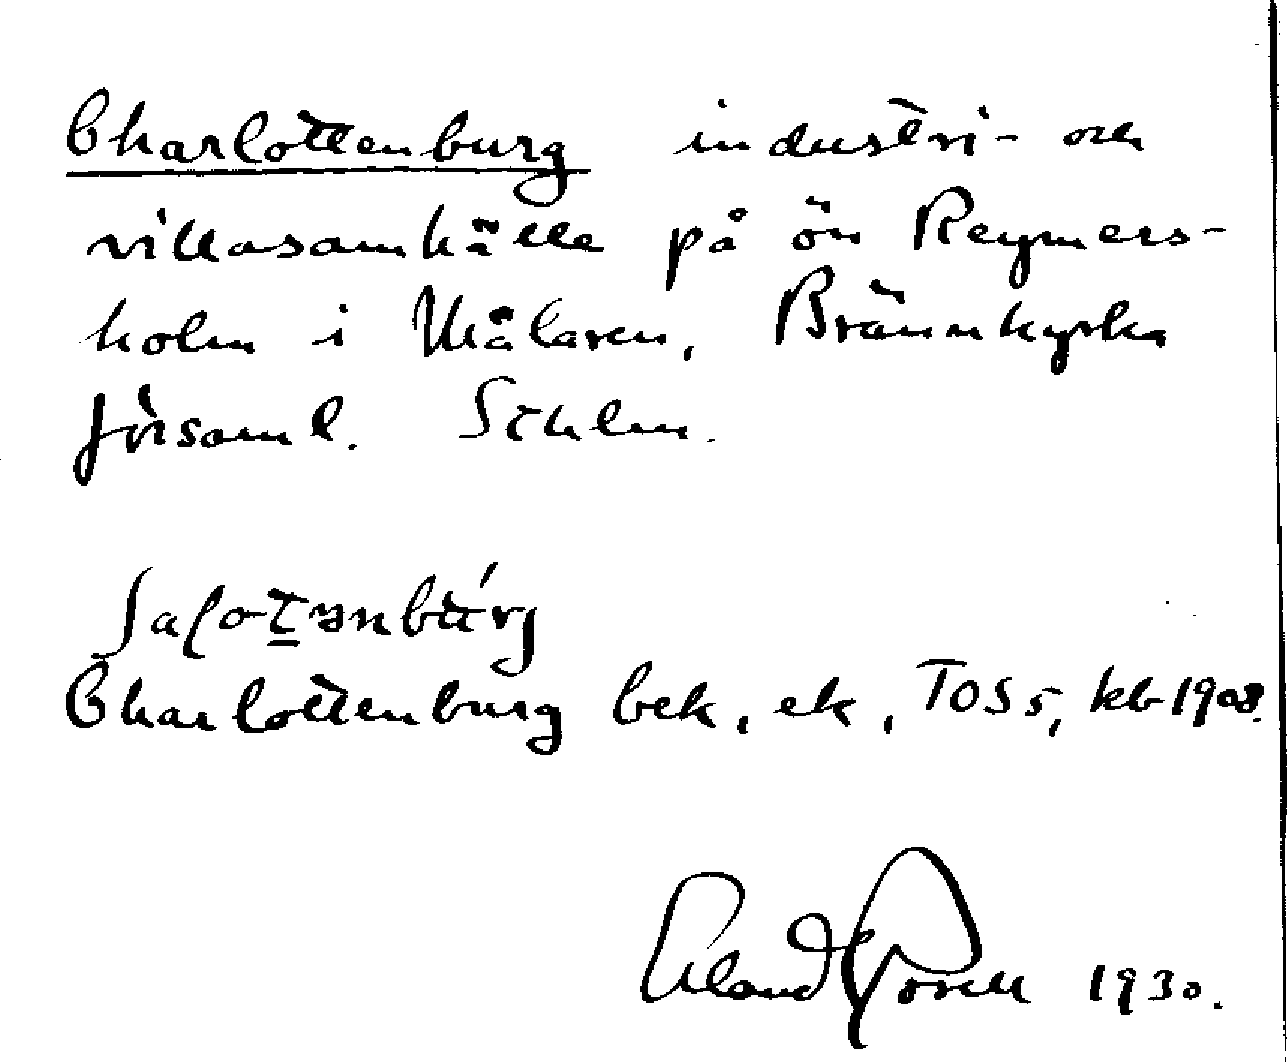 Charlottenburg industri- och
villasamhälle på ön Reymers-
holm i Mälaren, Brännkyrka
församl. Sthlm.
Charlottenburg bek, ek, TOS5, kb 1908.
Erland Rosell 1930.